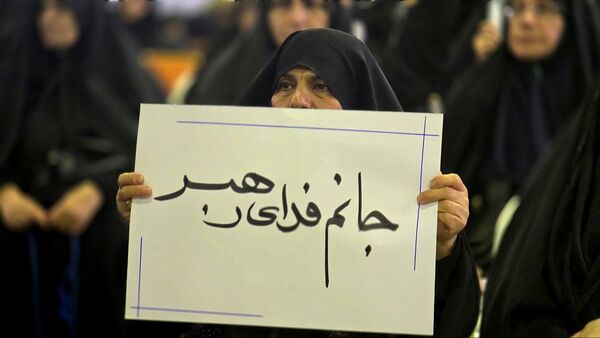 جانم فدای رهبر